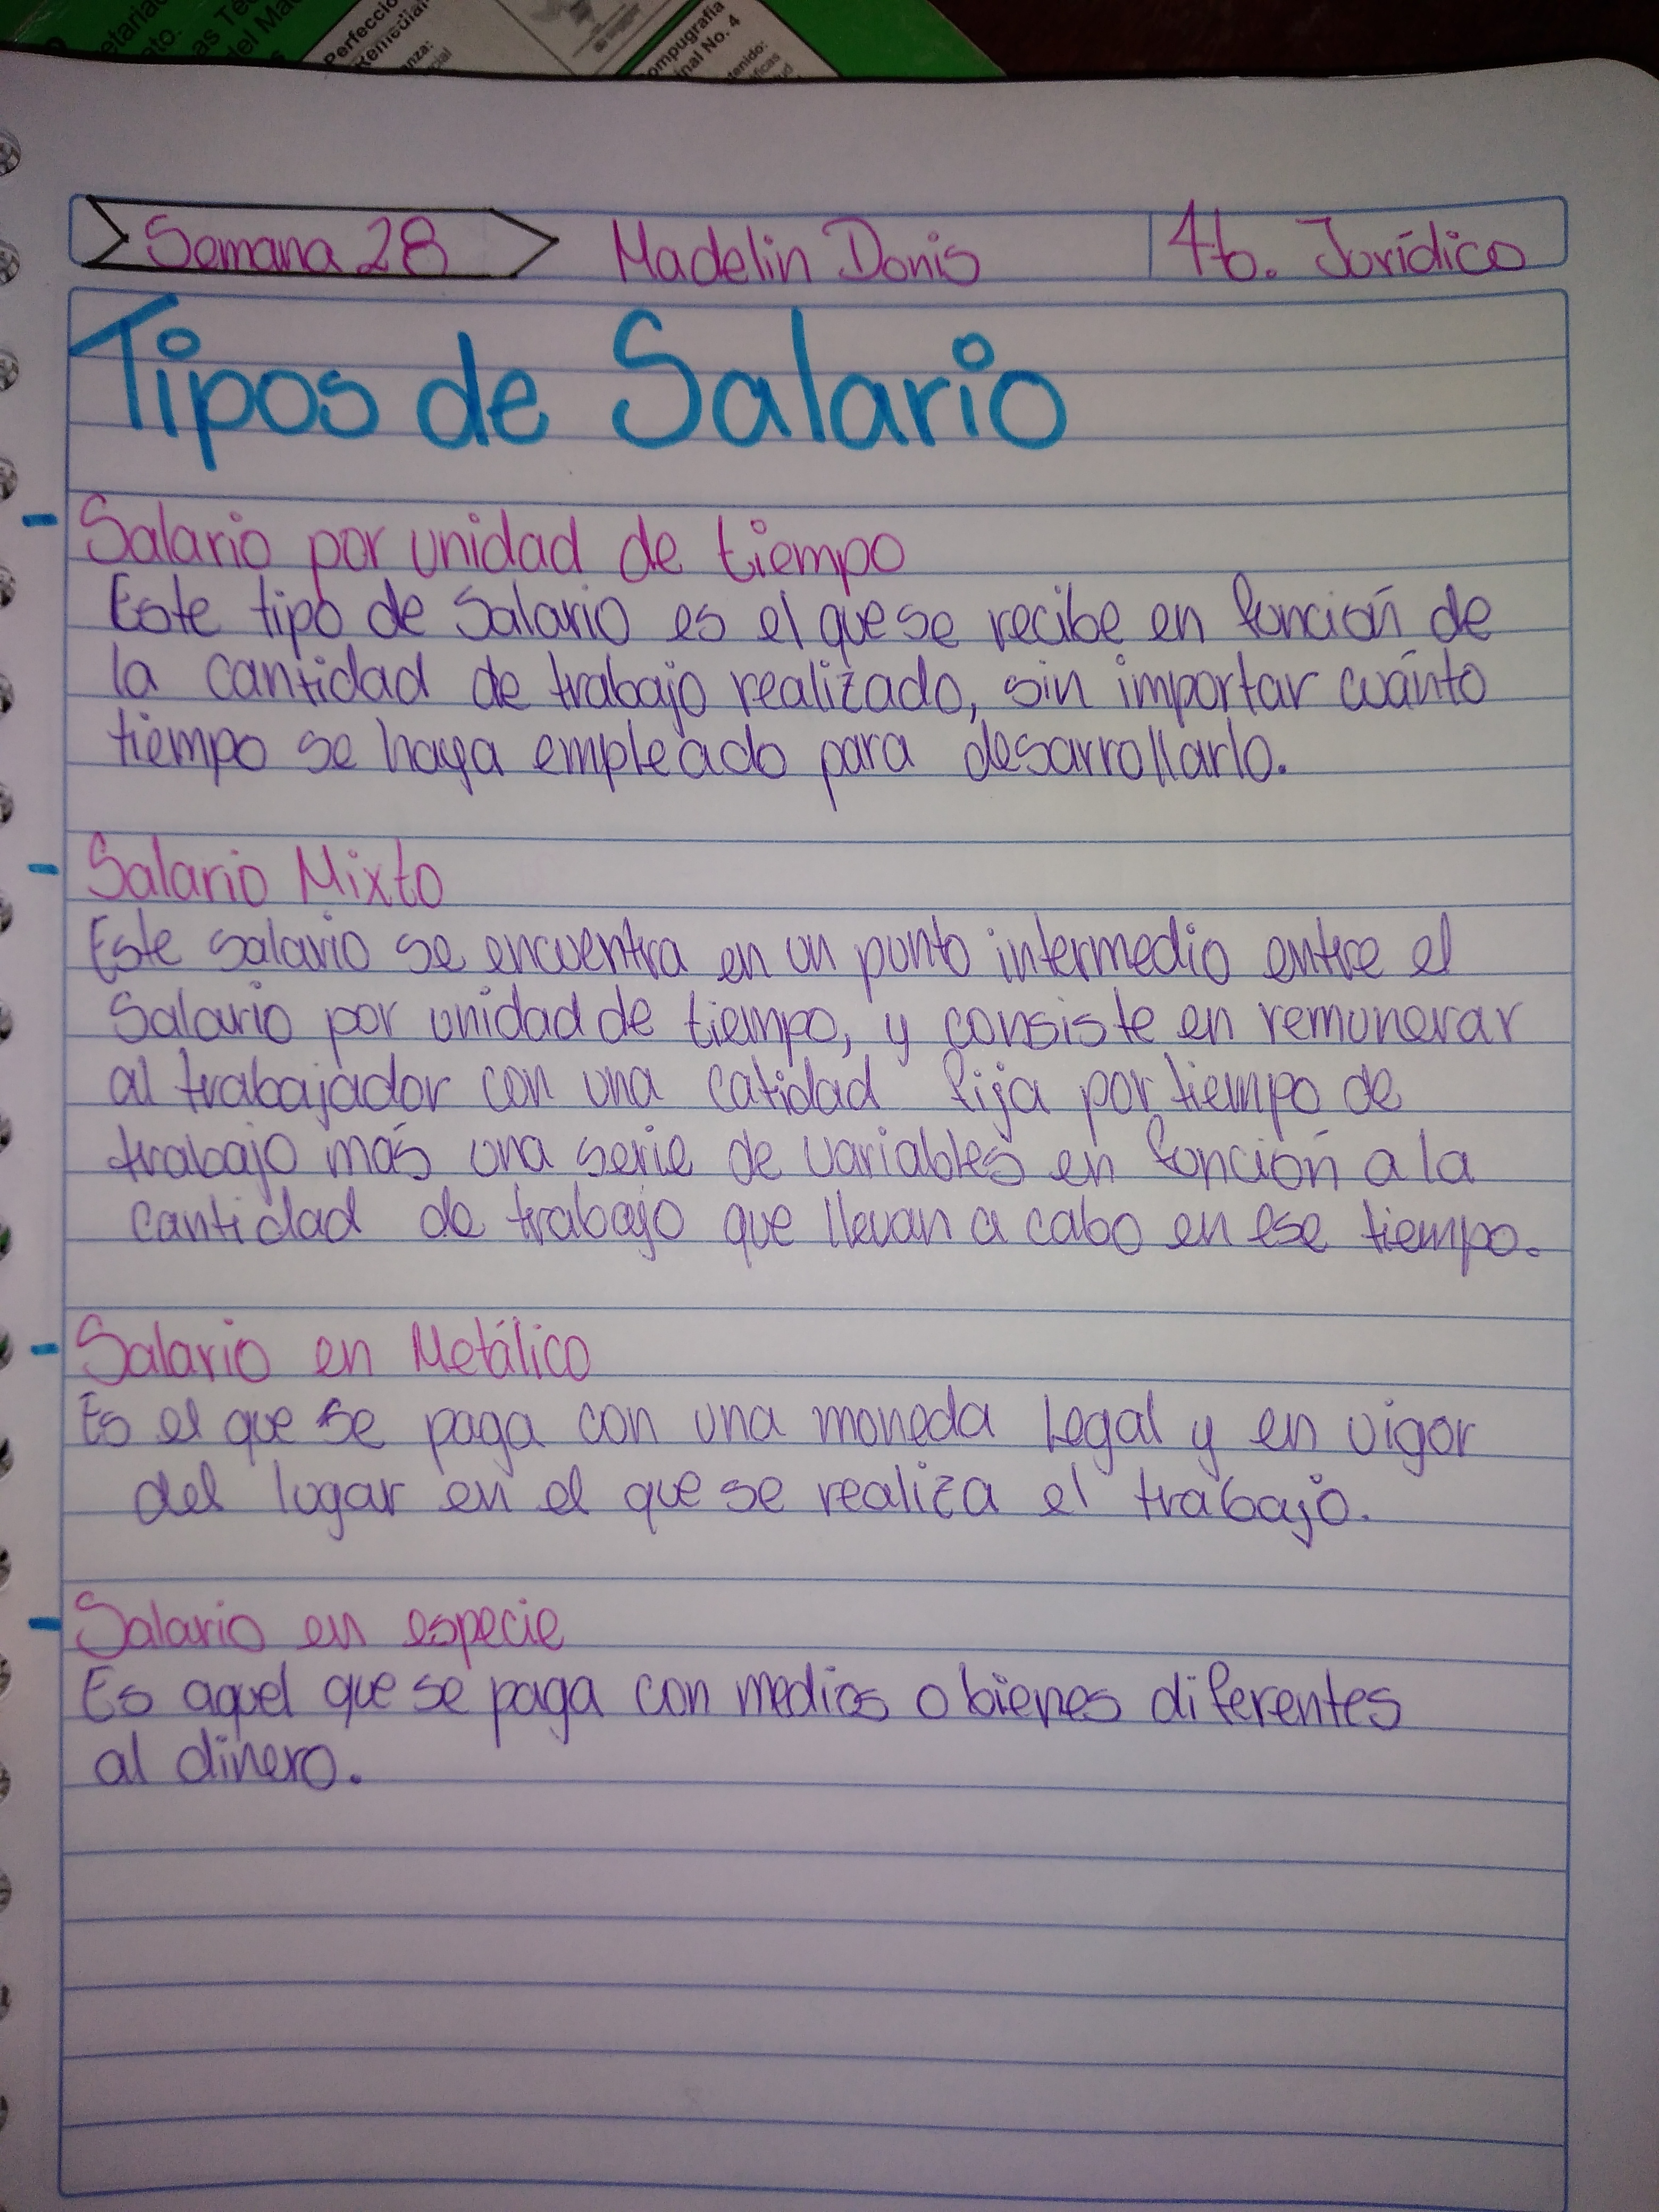 Perfecció
Remedial
Compugrafía
inal No. 4
Semana 28 Madelin Donis 4to. Jurídico
Tipos de Salario
- Salario por unidad de tiempo
Este tipo de Salario es el que se recibe en función de
la cantidad de trabajo realizado, sin importar cuánto
tiempo se haya empleado para desarrollarlo.
- Salario Mixto
Este salario se encuentra en un punto intermedio entre el
Salario por unidad de tiempo, y consiste en remunerar
al trabajador con una catidad fija por tiempo de
trabajo más una serie de variables en función a la
cantidad de trabajo que llevan a cabo en ese tiempo.
- Salario en Metálico
Es el que se paga con una moneda legal y en vigor
del lugar en el que se realiza el trabajo.
- Salario en especie
Es aquel que se paga con medios o bienes diferentes
al dinero.